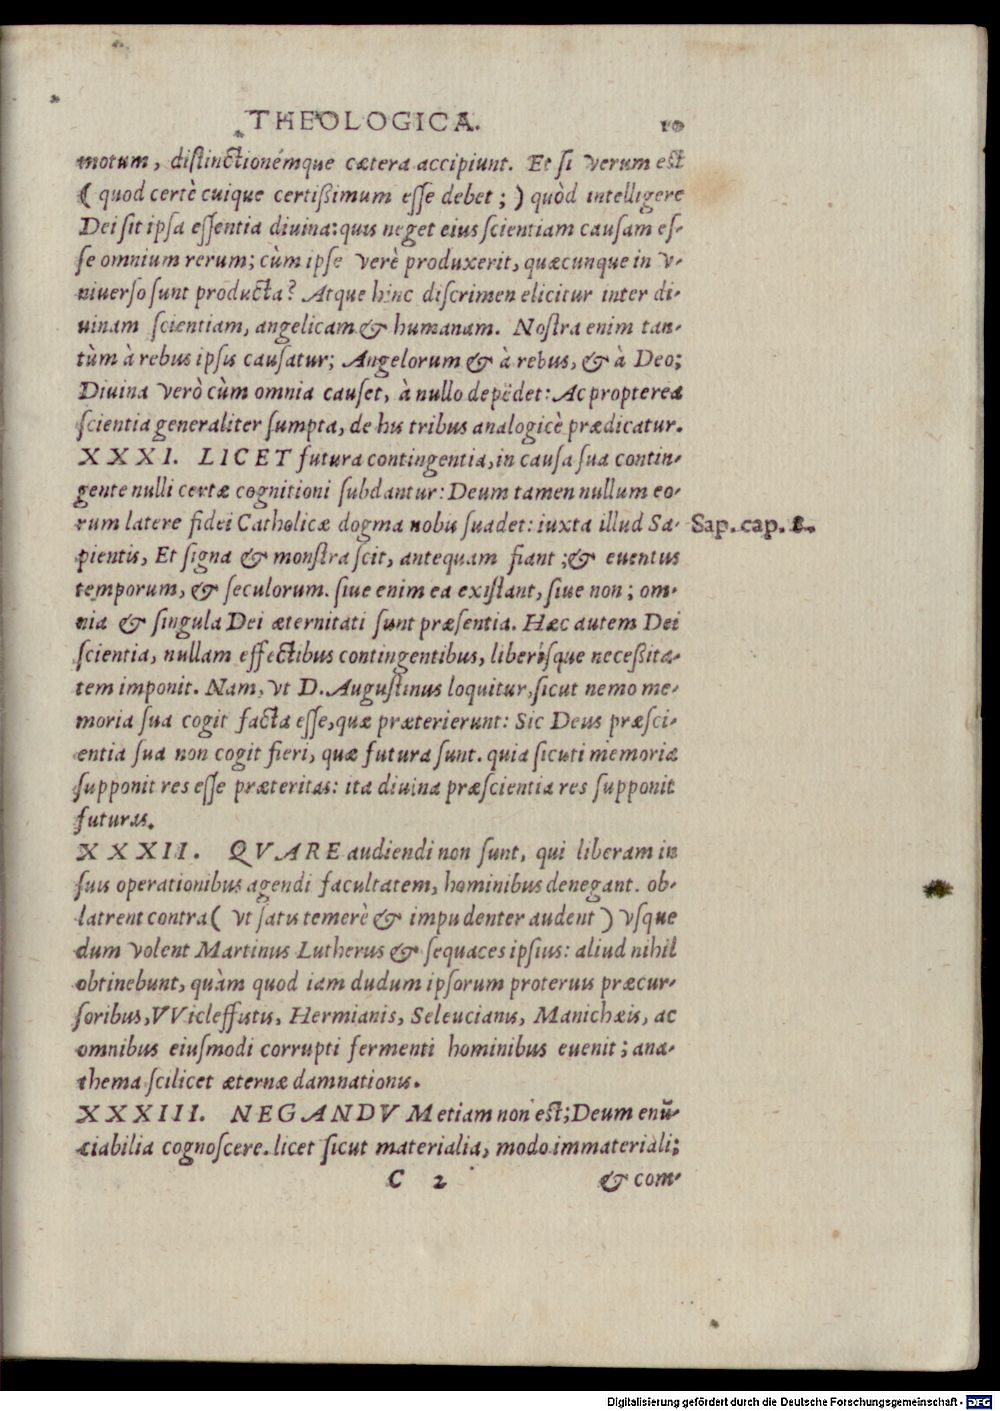 THEOLOGICA. 10
motum, distinctionémque cætera accipiunt. Et si verum est
( quod certè cuique certißimum esse debet ; ) quòd intelligere
Dei sit ipsa essentia diuina: quis neget eius scientiam causam es-
se omnium rerum; cùm ipse verè produxerit, quæcunque in v-
niuerso sunt producta? Atque hinc discrimen elicitur inter di-
uinam scientiam, angelicam & humanam. Nostra enim tan-
tùm à rebus ipsis causatur; Angelorum & à rebus, & à Deo;
Diuina verò cùm omnia causet, à nullo depēdet: Ac propterea
scientia generaliter sumpta, de his tribus analogicè prædicatur.
XXXI. LICET futura contingentia, in causa sua contin-
gente nulli certæ cognitioni subdantur: Deum tamen nullum eo-
rum latere fidei Catholicæ dogma nobis suadet: iuxta illud Sa- Sap. cap. 8.
pientis, Et signa & monstra scit, antequam fiant ; & euentus
temporum, & seculorum. siue enim ea existant, siue non ; om-
nia & singula Dei æternitati sunt præsentia. Hæc autem Dei
scientia, nullam effectibus contingentibus, liberisque neceßita-
tem imponit. Nam, vt D. Augustinus loquitur, sicut nemo me-
moria sua cogit facta esse, quæ præterierunt: Sic Deus præsci-
entia sua non cogit fieri, quæ futura sunt. quia sicuti memoria
supponit res esse præteritas: ita diuina præscientia res supponit
futuras.
XXXII. QVARE audiendi non sunt, qui liberam in
suis operationibus agendi facultatem, hominibus denegant. ob-
latrent contra ( vt satis temerè & impudenter audent ) vsque
dum volent Martinus Lutherus & sequaces ipsius: aliud nihil
obtinebunt, quàm quod iam dudum ipsorum proteruis præcur-
soribus, VVicleffistis, Hermianis, Seleucianis, Manichæis, ac
omnibus eiusmodi corrupti fermenti hominibus euenit ; ana-
thema scilicet æternæ damnationis.
XXXIII. NEGANDVM etiam non est; Deum enū-
ciabilia cognoscere. licet sicut materialia, modo immateriali;
C 2 & com-
Digitalisierung gefördert durch die Deutsche Forschungsgemeinschaft - DFG